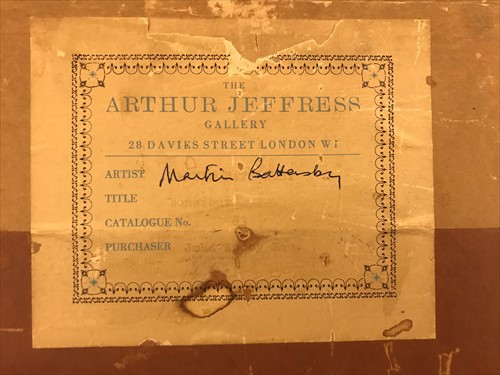 THE
ARTHUR JEFFRESS
GALLERY
28, DAVIES STREET LONDON W1
ARTIST Martin Battersby
TITLE
CATALOGUE No.
PURCHASER